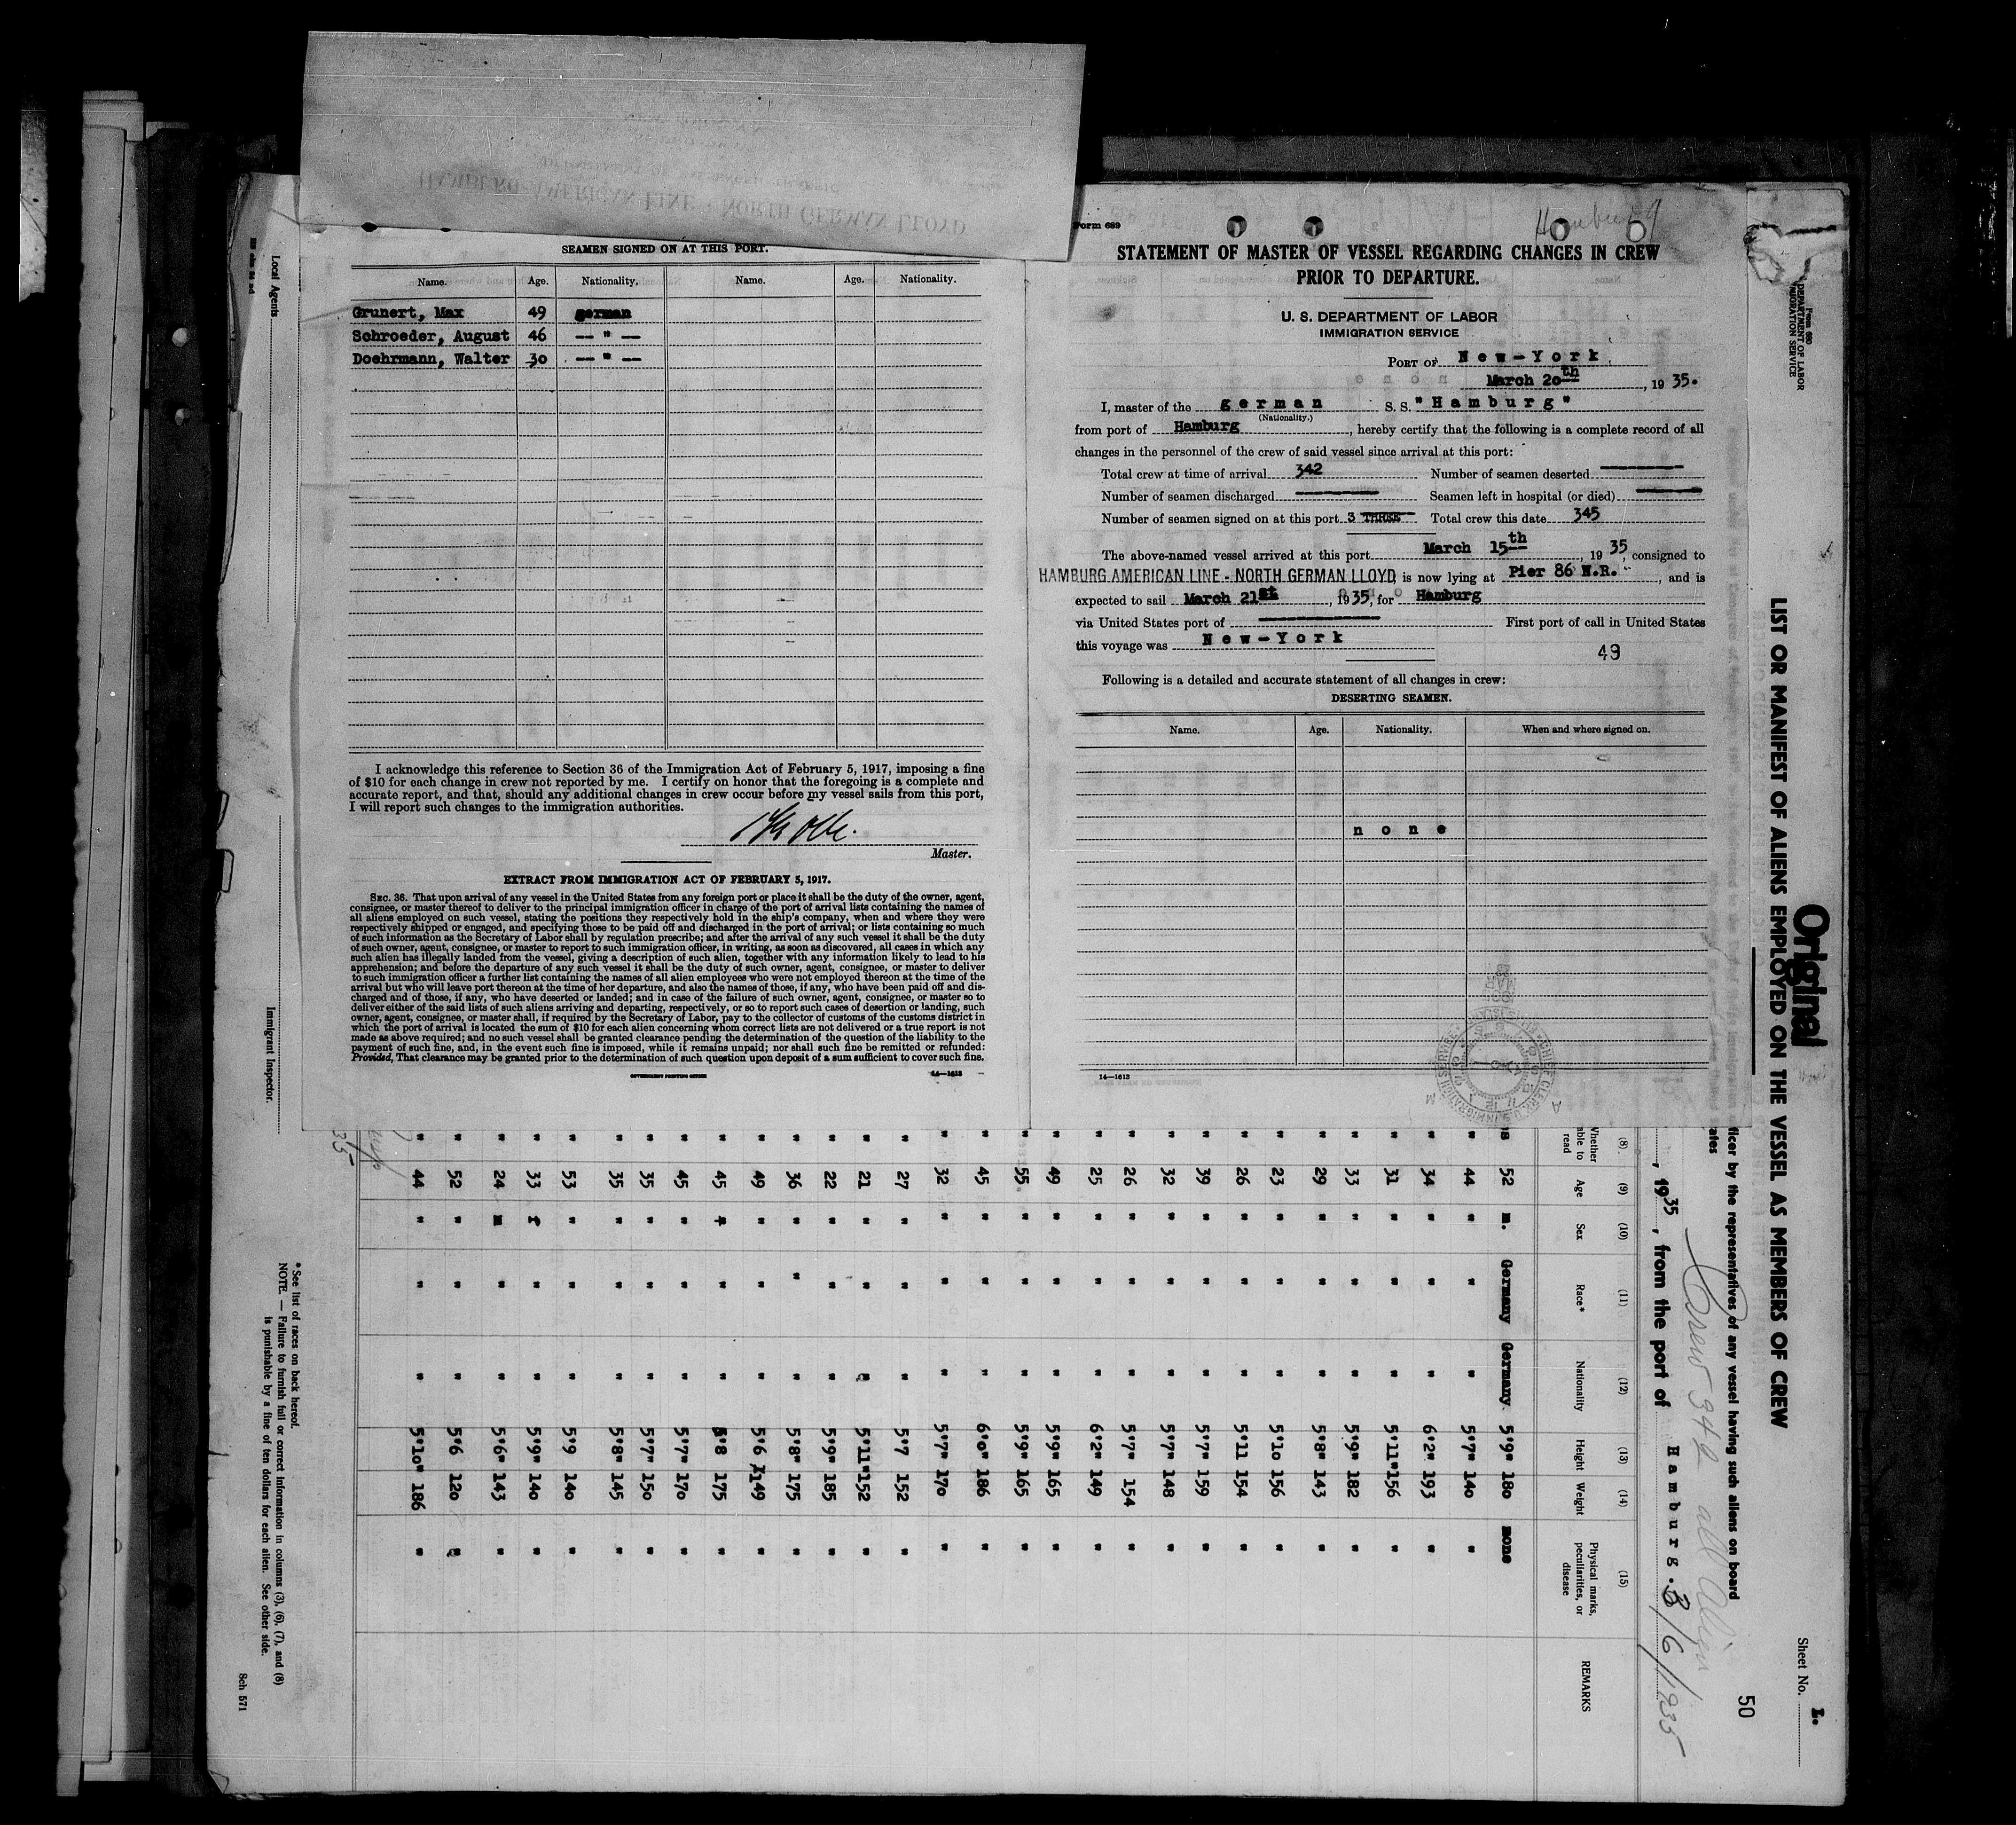 HAMBURG-AMERICAN LINE - NORTH GERMAN LLOYD
SEAMEN SIGNED ON AT THIS PORT.
Name. Age. Nationality. Name. Age. Nationality.
Grunert, Max 49 german
Schroeder, August 46 -- " --
Doehrmann, Walter 30 -- " --
I acknowledge this reference to Section 36 of the Immigration Act of February 5, 1917, imposing a fine
of $10 for each change in crew not reported by me. I certify on honor that the foregoing is a complete and
accurate report, and that, should any additional changes in crew occur before my vessel sails from this port,
I will report such changes to the immigration authorities.
Master.
EXTRACT FROM IMMIGRATION ACT OF FEBRUARY 5, 1917.
SEC. 36. That upon arrival of any vessel in the United States from any foreign port or place it shall be the duty of the owner, agent,
consignee, or master thereof to deliver to the principal immigration officer in charge of the port of arrival lists containing the names of
all aliens employed on such vessel, stating the positions they respectively hold in the ship's company, when and where they were
respectively shipped or engaged, and specifying those to be paid off and discharged in the port of arrival; or lists containing so much
of such information as the Secretary of Labor shall by regulation prescribe; and after the arrival of any such vessel it shall be the duty
of such owner, agent, consignee, or master to report to such immigration officer, in writing, as soon as discovered, all cases in which any
such alien has illegally landed from the vessel, giving a description of such alien, together with any information likely to lead to his
apprehension; and before the departure of any such vessel it shall be the duty of such owner, agent, consignee, or master to deliver
to such immigration officer a further list containing the names of all alien employees who were not employed thereon at the time of the
arrival but who will leave port thereon at the time of her departure, and also the names of those, if any, who have been paid off and dis-
charged and of those, if any, who have deserted or landed; and in case of the failure of such owner, agent, consignee, or master so to
deliver either of the said lists of such aliens arriving and departing, respectively, or so to report such cases of desertion or landing, such
owner, agent, consignee, or master shall, if required by the Secretary of Labor, pay to the collector of customs of the customs district in
which the port of arrival is located the sum of $10 for each alien concerning whom correct lists are not delivered or a true report is not
made as above required; and no such vessel shall be granted clearance pending the determination of the question of the liability to the
payment of such fine, and, in the event such fine is imposed, while it remains unpaid; nor shall such fine be remitted or refunded:
Provided, That clearance may be granted prior to the determination of such question upon deposit of a sum sufficient to cover such fine.
GOVERNMENT PRINTING OFFICE 14—1613
Form 689
Hamburg
STATEMENT OF MASTER OF VESSEL REGARDING CHANGES IN CREW
PRIOR TO DEPARTURE.
U. S. DEPARTMENT OF LABOR
IMMIGRATION SERVICE
PORT OF New-York
March 20th, 1935.
I, master of the german S. S. "Hamburg"
(Nationality.)
from port of Hamburg, hereby certify that the following is a complete record of all
changes in the personnel of the crew of said vessel since arrival at this port:
Total crew at time of arrival 342 Number of seamen deserted
Number of seamen discharged Seamen left in hospital (or died)
Number of seamen signed on at this port 3 THREE Total crew this date 345
The above-named vessel arrived at this port March 15th, 1935, consigned to
HAMBURG AMERICAN LINE - NORTH GERMAN LLOYD, is now lying at Pier 86 N.R., and is
expected to sail March 21st, 1935, for Hamburg
via United States port of First port of call in United States
this voyage was New-York
49
Following is a detailed and accurate statement of all changes in crew:
DESERTING SEAMEN.
Name. Age. Nationality. When and where signed on.
none
14—1613
Form 680
DEPARTMENT OF LABOR
IMMIGRATION SERVICE
Original
LIST OR MANIFEST OF ALIENS EMPLOYED ON THE VESSEL AS MEMBERS OF CREW
Sheet No. 1.
50
ficer by the representatives of any vessel having such aliens on board
ates
Crew 342 all Alien
, 1935, from the port of Hamburg. 3/6/1935
(8) (9) (10) (11) (12) (13) (14) (15)
Whether able to read Age Sex Race* Nationality Height Weight Physical marks, peculiarities, or disease REMARKS
52 m. Germany Germany 5'9" 180 none
" 44 " " " 5'7" 140 "
" 34 " " " 6'2" 193 "
" 31 " " " 5'11" 156 "
" 33 " " " 5'9" 182 "
" 29 " " " 5'8" 143 "
" 23 " " " 5'10 156 "
" 26 " " " 5'11 154 "
" 39 " " " 5'7" 159 "
" 32 " " " 5'7" 148 "
" 26 " " " 5'7" 154 "
" 25 " " " 6'2" 149 "
" 49 " " " 5'9" 165 "
" 55 " " " 5'9" 165 "
" 45 " " " 6'0" 186 "
" 32 " " " 5'7" 170 "
" 27 " " " 5'7 152 "
" 21 " " " 5'11" 152 "
" 22 " " " 5'9" 185 "
" 36 " " " 5'8" 175 "
" 49 " " " 5'6 149 "
" 45 f " " 5'8 175 "
" 45 " " " 5'7" 170 "
" 35 " " " 5'7" 150 "
" 35 " " " 5'8" 145 "
" 53 " " " 5'9 140 "
" 33 f " " 5'9" 140 "
" 24 m " " 5'6" 143 "
" 52 " " " 5'6 120 "
" 44 " " " 5'10" 186 "
* See list of races on back hereof.
NOTE. — Failure to furnish full or correct information in columns (3), (6), (7), and (8)
is punishable by a fine of ten dollars for each alien. See other side.
Sch 571
Local Agents
Immigrant Inspector.